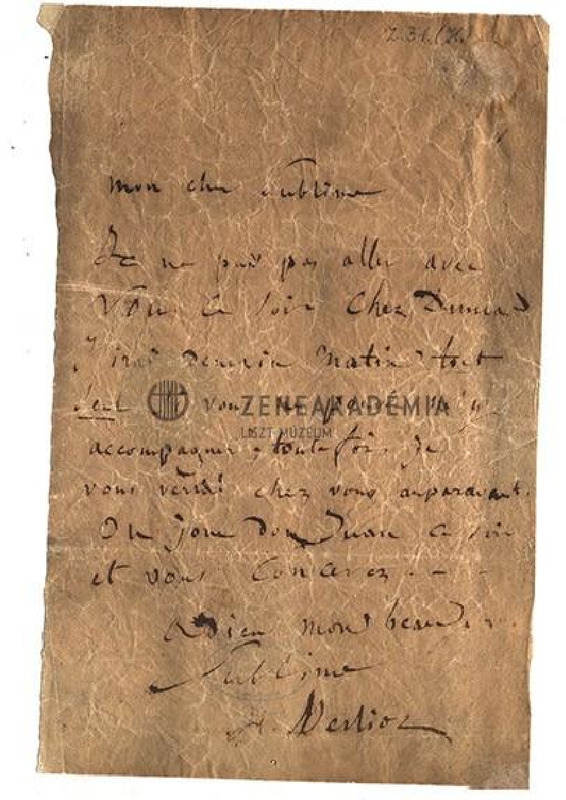 Z.31.(K.)
mon cher sublime
Je ne puis pas aller avec
vous ce soir chez Dumas
J'irai demain matin tout
seul si vous ne pouvez m'y
accompagner, toutefois je
vous verrai chez vous auparavant.
On joue Don Juan ce soir
et vous concevez - - -
Adieu mon beau
sublime
H. Berlioz
ZENEAKADÉMIA
LISZT MÚZEUM